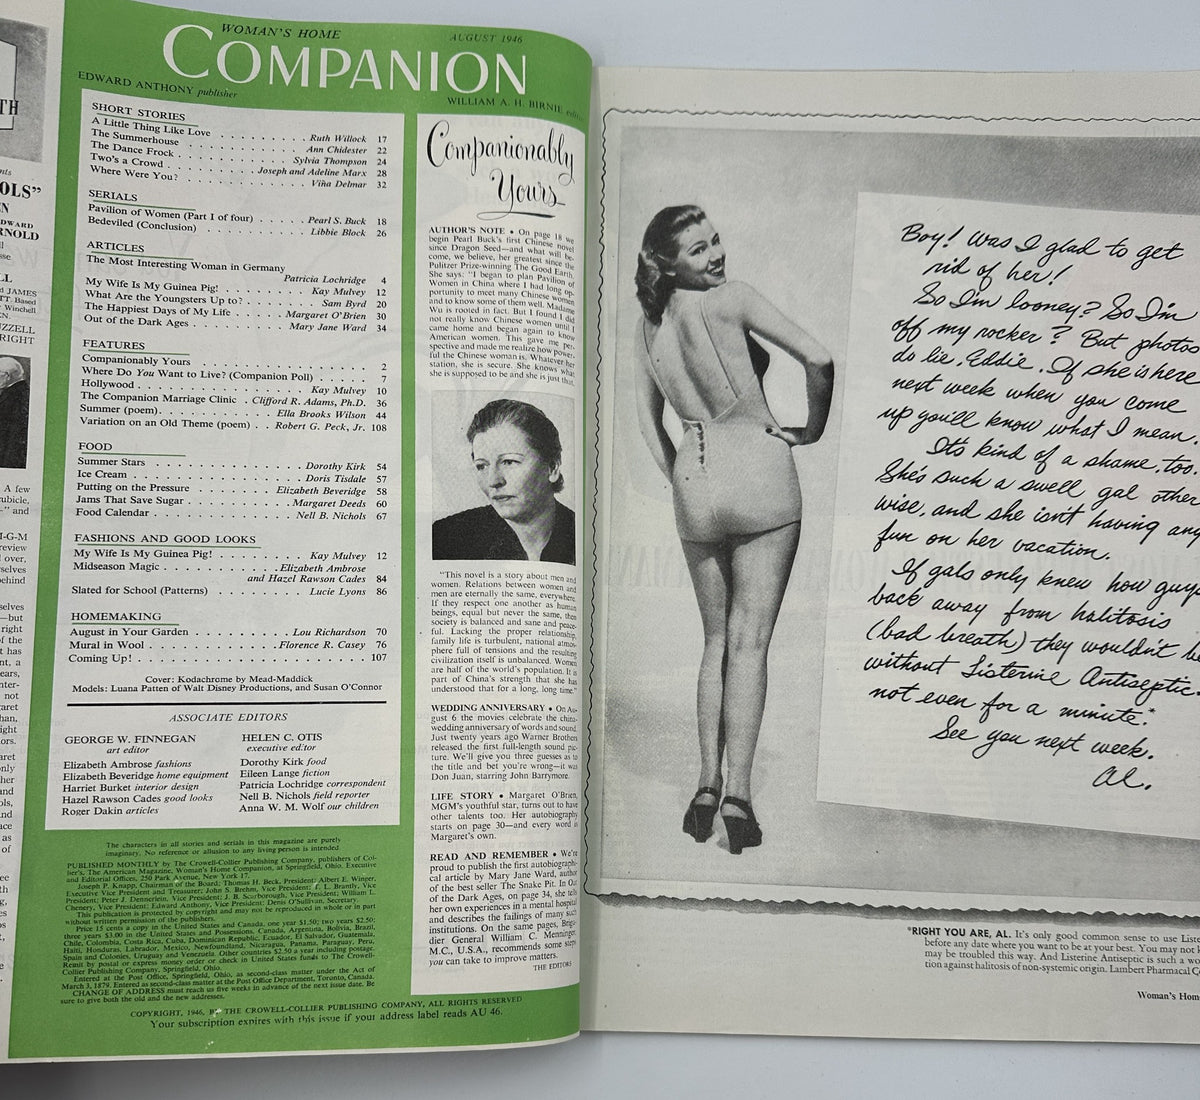 WOMAN'S HOME
AUGUST 1946
COMPANION
EDWARD ANTHONY publisher
WILLIAM A. H. BIRNIE
SHORT STORIES
A Little Thing Like Love . . . Ruth Willock 17
The Summerhouse . . . Ann Chidester 22
The Dance Frock . . . Sylvia Thompson 24
Two's a Crowd . . . Joseph and Adeline Marx 28
Where Were You? . . . Viña Delmar 32
SERIALS
Pavilion of Women (Part I of four) . . . Pearl S. Buck 18
Bedeviled (Conclusion) . . . Libbie Block 26
ARTICLES
The Most Interesting Woman in Germany
Patricia Lochridge 4
My Wife Is My Guinea Pig! . . . Kay Mulvey 12
What Are the Youngsters Up to? . . . Sam Byrd 20
The Happiest Days of My Life . . . Margaret O'Brien 30
Out of the Dark Ages . . . Mary Jane Ward 34
FEATURES
Companionably Yours . . . 2
Where Do You Want to Live? (Companion Poll) . . . 7
Hollywood . . . Kay Mulvey 10
The Companion Marriage Clinic . Clifford R. Adams, Ph.D. 36
Summer (poem) . . . Ella Brooks Wilson 44
Variation on an Old Theme (poem) . . Robert G. Peck, Jr. 108
FOOD
Summer Stars . . . Dorothy Kirk 54
Ice Cream . . . Doris Tisdale 57
Putting on the Pressure . . . Elizabeth Beveridge 58
Jams That Save Sugar . . . Margaret Deeds 60
Food Calendar . . . Nell B. Nichols 67
FASHIONS AND GOOD LOOKS
My Wife Is My Guinea Pig! . . . Kay Mulvey 12
Midseason Magic . . . Elizabeth Ambrose
and Hazel Rawson Cades 84
Slated for School (Patterns) . . . Lucie Lyons 86
HOMEMAKING
August in Your Garden . . . Lou Richardson 70
Mural in Wool . . . Florence R. Casey 76
Coming Up! . . . 107
Cover: Kodachrome by Mead-Maddick
Models: Luana Patten of Walt Disney Productions, and Susan O'Connor
ASSOCIATE EDITORS
GEORGE W. FINNEGAN
art editor
Elizabeth Ambrose fashions
Elizabeth Beveridge home equipment
Harriet Burket interior design
Hazel Rawson Cades good looks
Roger Dakin articles
HELEN C. OTIS
executive editor
Dorothy Kirk food
Eileen Lange fiction
Patricia Lochridge correspondent
Nell B. Nichols field reporter
Anna W. M. Wolf our children
The characters in all stories and serials in this magazine are purely
imaginary. No reference or allusion to any living person is intended.
PUBLISHED MONTHLY by The Crowell-Collier Publishing Company, publishers of Col-
lier's, The American Magazine, Woman's Home Companion, at Springfield, Ohio. Executive
and Editorial Offices, 250 Park Avenue, New York 17.
Joseph P. Knapp, Chairman of the Board; Thomas H. Beck, President; Albert E. Winger,
Executive Vice President and Treasurer; John S. Brehm, Vice President; F. L. Brantly, Vice
President; Peter J. Dennerlein, Vice President; J. B. Scarborough, Vice President; William L.
Chenery, Vice President; Edward Anthony, Vice President; Denis O'Sullivan, Secretary.
This publication is protected by copyright and may not be reproduced in whole or in part
without written permission of the publishers.
Price 15 cents a copy in the United States and Canada, one year $1.50; two years $2.50;
three years $3.00 in the United States and Possessions, Canada, Argentina, Bolivia, Brazil,
Chile, Colombia, Costa Rica, Cuba, Dominican Republic, Ecuador, El Salvador, Guatemala,
Haiti, Honduras, Labrador, Mexico, Newfoundland, Nicaragua, Panama, Paraguay, Peru,
Spain and Colonies, Uruguay and Venezuela. Other countries $2.50 a year including postage.
Remit by postal or express money order or check in United States funds to The Crowell-
Collier Publishing Company, Springfield, Ohio.
Entered at the Post Office, Springfield, Ohio, as second-class matter under the Act of
March 3, 1879. Entered as second-class matter at the Post Office Department, Toronto, Canada.
CHANGE OF ADDRESS must reach us five weeks in advance of the next issue date. Be
sure to give both the old and the new addresses.
COPYRIGHT, 1946, BY THE CROWELL-COLLIER PUBLISHING COMPANY, ALL RIGHTS RESERVED
Your subscription expires with this issue if your address label reads AU 46.
Companionably
Yours
AUTHOR'S NOTE • On page 18 we
begin Pearl Buck's first Chinese novel
since Dragon Seed—and what will be-
come, we believe, her greatest since the
Pulitzer Prize-winning The Good Earth.
She says: "I began to plan Pavilion of
Women in China where I had long op-
portunity to meet many Chinese women
and to know some of them well. Madame
Wu is rooted in fact. But I found I did
not really know Chinese women until I
came home and began again to know
American women. This gave me per-
spective and made me realize how power-
ful the Chinese woman is. Whatever her
station, she is secure. She knows what
she is supposed to be and she is just that.
"This novel is a story about men and
women. Relations between women and
men are eternally the same, everywhere.
If they respect one another as human
beings, equal but never the same, then
society is balanced and sane and peace-
ful. Lacking the proper relationship,
family life is turbulent, national atmos-
phere full of tensions and the resulting
civilization itself is unbalanced. Women
are half of the world's population. It is
part of China's strength that she has
understood that for a long, long time."
WEDDING ANNIVERSARY • On Au-
gust 6 the movies celebrate the china-
wedding anniversary of words and sound.
Just twenty years ago Warner Brothers
released the first full-length sound pic-
ture. We'll give you three guesses as to
the title and bet you're wrong—it was
Don Juan, starring John Barrymore.
LIFE STORY • Margaret O'Brien,
MGM's youthful star, turns out to have
other talents too. Her autobiography
starts on page 30—and every word is
Margaret's own.
READ AND REMEMBER • We're
proud to publish the first autobiograph-
ical article by Mary Jane Ward, author
of the best seller The Snake Pit. In Out
of the Dark Ages, on page 34, she tells
her own experiences in a mental hospital
and describes the failings of many such
institutions. On the same pages, Briga-
dier General William C. Menninger,
M.C., U.S.A., recommends some steps
you can take to improve matters.
THE EDITORS
Boy! Was I glad to get
rid of her!
So I'm looney? So I'm
off my rocker? But photos
do lie, Eddie. If she is here
next week when you come
up you'll know what I mean.
It's kind of a shame, too.
She's such a swell gal other-
wise, and she isn't having any
fun on her vacation.
If gals only knew how guys
back away from halitosis
(bad breath) they wouldn't be
without Listerine Antiseptic.
not even for a minute.*
See you next week.
Al.
*RIGHT YOU ARE, AL. It's only good common sense to use Liste
before any date where you want to be at your best. You may not k
may be troubled this way. And Listerine Antiseptic is such a wo
tion against halitosis of non-systemic origin. Lambert Pharmacal C
Woman's Hom